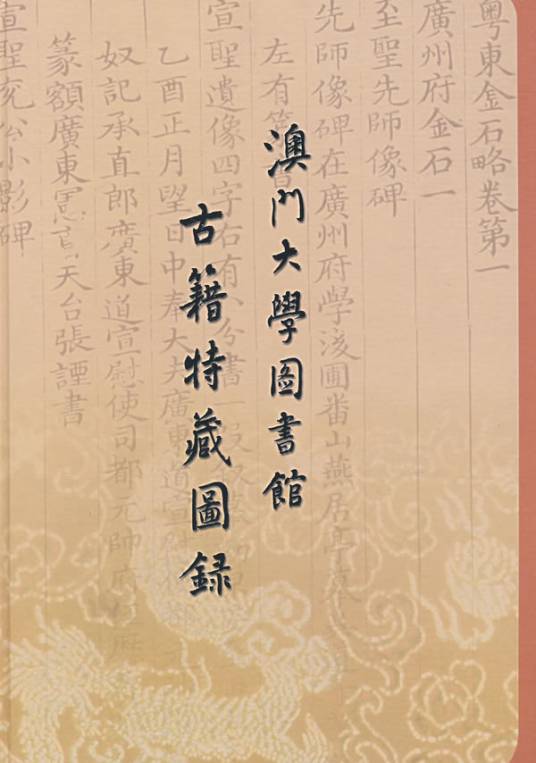 澳門大學图書館
古籍特藏圖録
粵東金石略卷第一
廣州府金石一
至聖先師像碑
先師像碑在廣州府學圃番山燕居亭
左有
宣聖遺像四字右有八分書一
乙酉正月望日中奉大夫廣東道宣
奴記承直郎廣東道宣慰使司都元帥府
篆額廣東憲天台張諲書
宣聖兗公小影碑